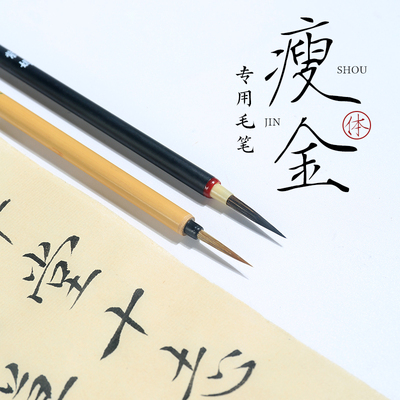 瘦金
体
SHOU
JIN
专用毛笔
堂十